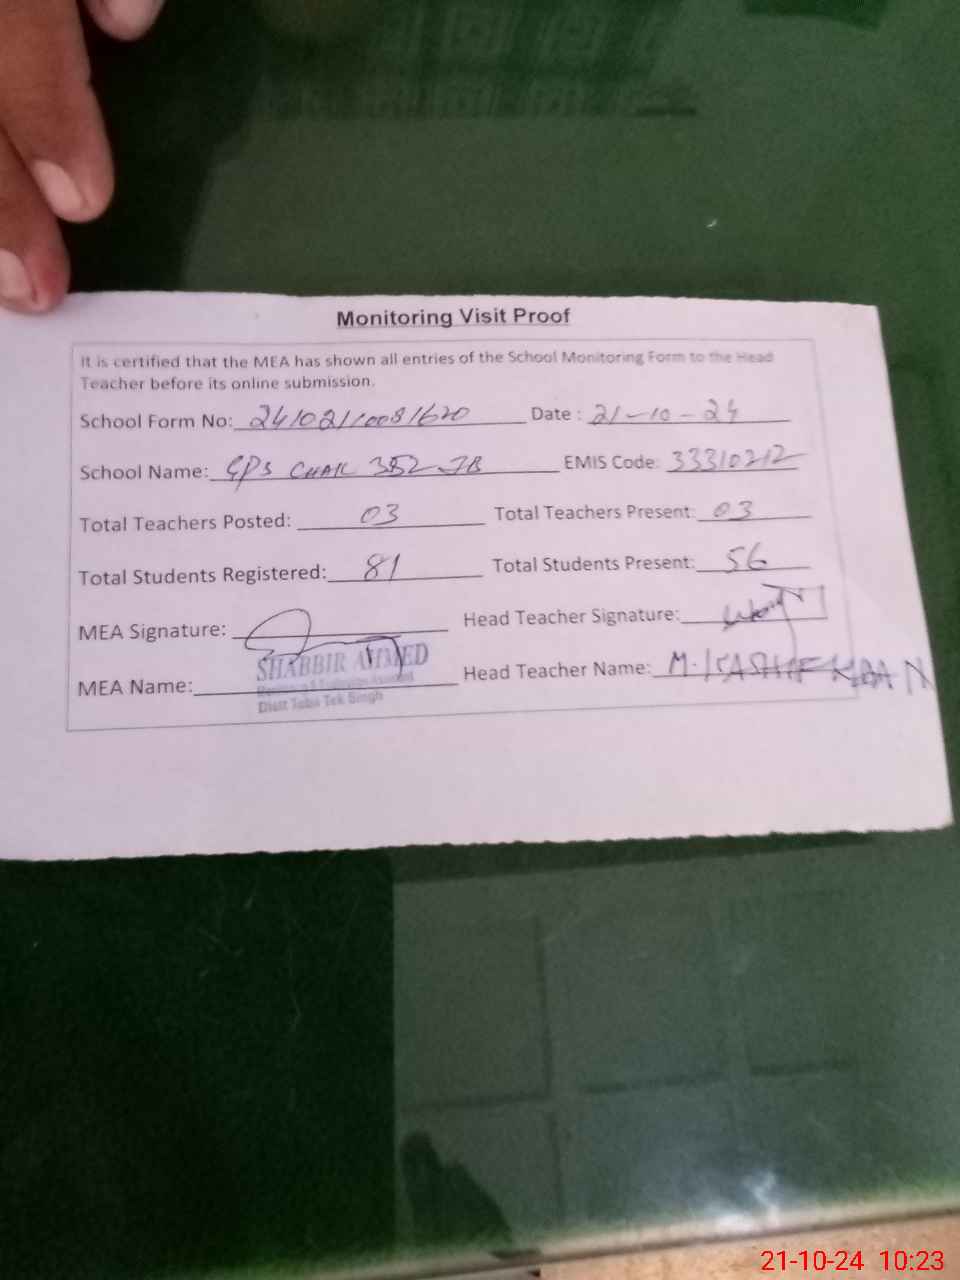 Monitoring Visit Proof
It is certified that the MEA has shown all entries of the School Monitoring Form to the Head
Teacher before its online submission.
School Form No: 24102110081620 Date : 21-10-24
School Name: GPS CHAK 382 JB EMIS Code: 33310212
Total Teachers Posted: 03 Total Teachers Present: 03
Total Students Registered: 81 Total Students Present: 56
MEA Signature: Head Teacher Signature:
MEA Name: SHABBIR AHMED Head Teacher Name: M. KASHIF KHAN
Distt Toba Tek Singh
21-10-24 10:23